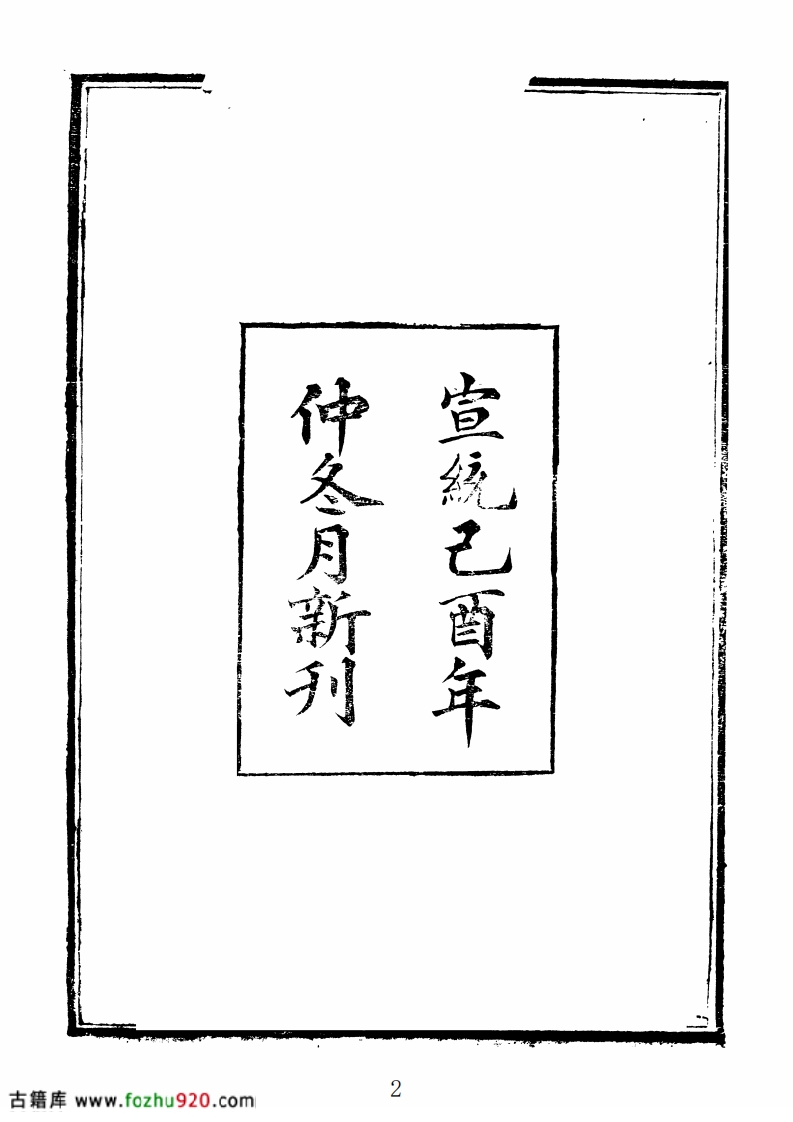 宣統己酉年
仲冬月新刊
2
古籍库 www.fozhu920.com